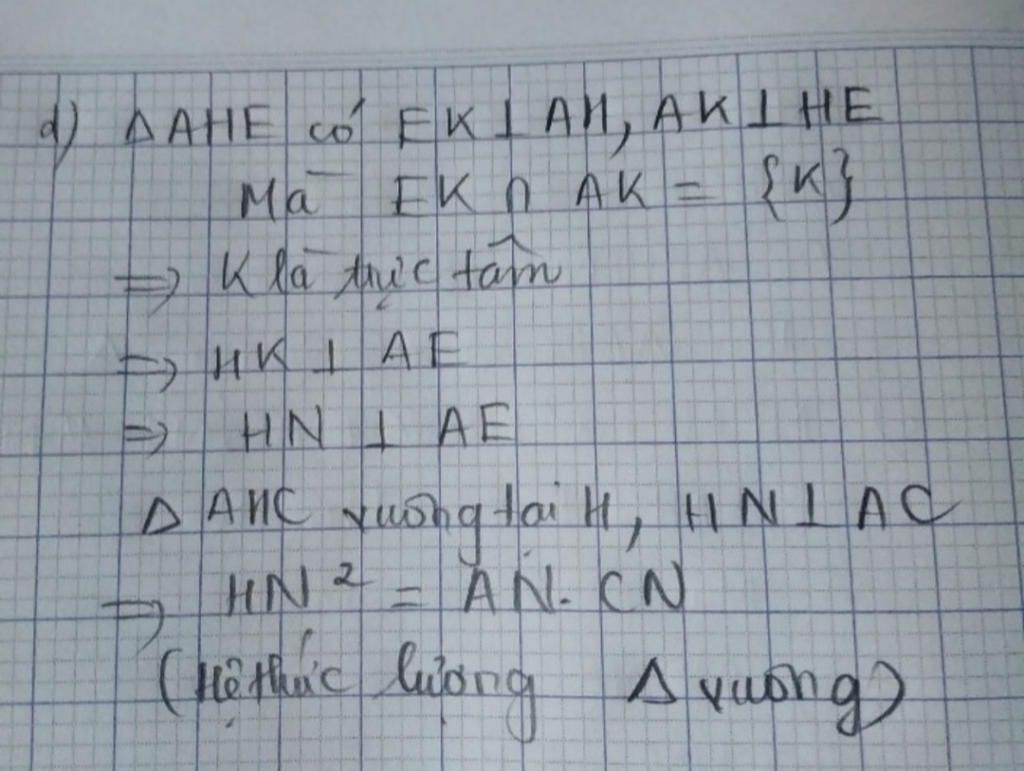 d) Δ AHE có EK ⊥ AH, AK ⊥ HE
Mà EK ∩ AK = {K}
=> K là trực tâm
=> HK ⊥ AE
=> HN ⊥ AE
Δ AHC vuông tại H, HN ⊥ AC
=> HN² = AN. CN
(Hệ thức lượng Δ vuông)